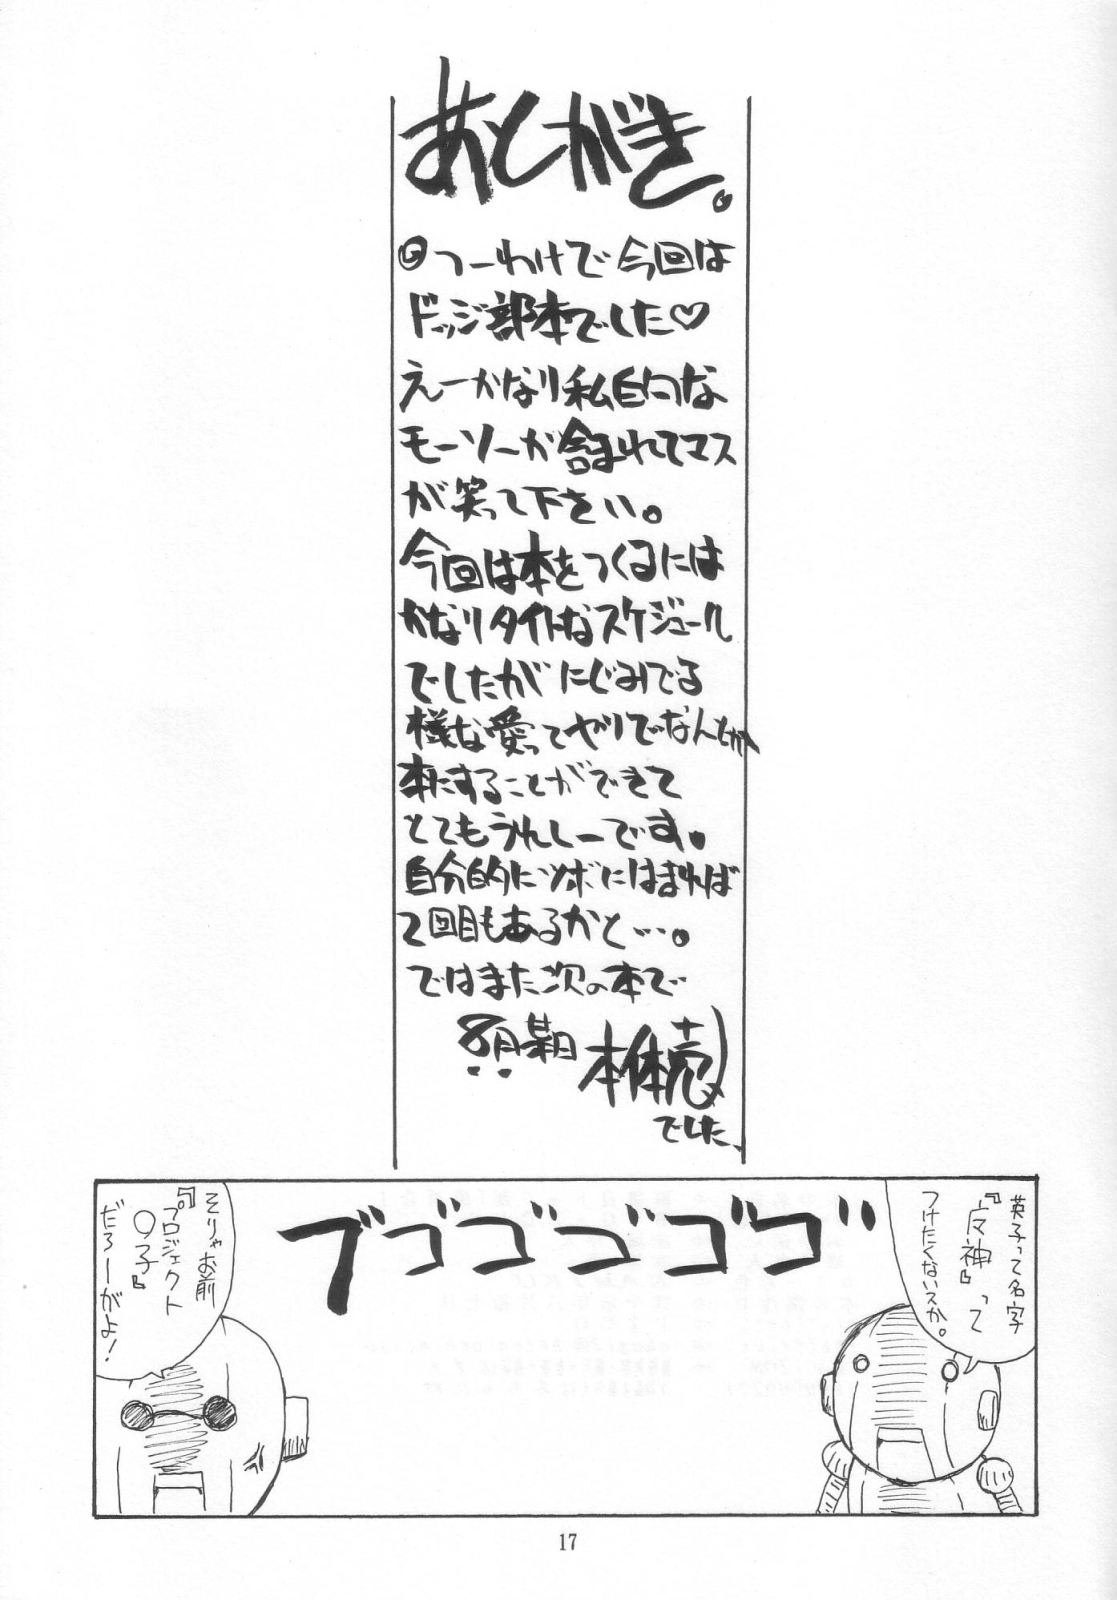 あとがき。
つーわけで今回は
ドッジ部本でした♡
えーかなり私的な
モーソーが含まれてマス
が笑って下さい。
今回は本をつくるには
かなりタイトなスケジュール
でしたがにじみでる
様な愛ってヤツでなんとか
本にすることができて
とてもうれしーです。
自分的にツボにはまれば
2回目もあるかと…。
ではまた次の本で
8月某日
本体売
でした、
英子って名字
『皮神』って
つけたくないスか。
ゴゴゴゴゴゴ
そりゃお前
『プロジェクト
〇子』
だろーがよ!
17